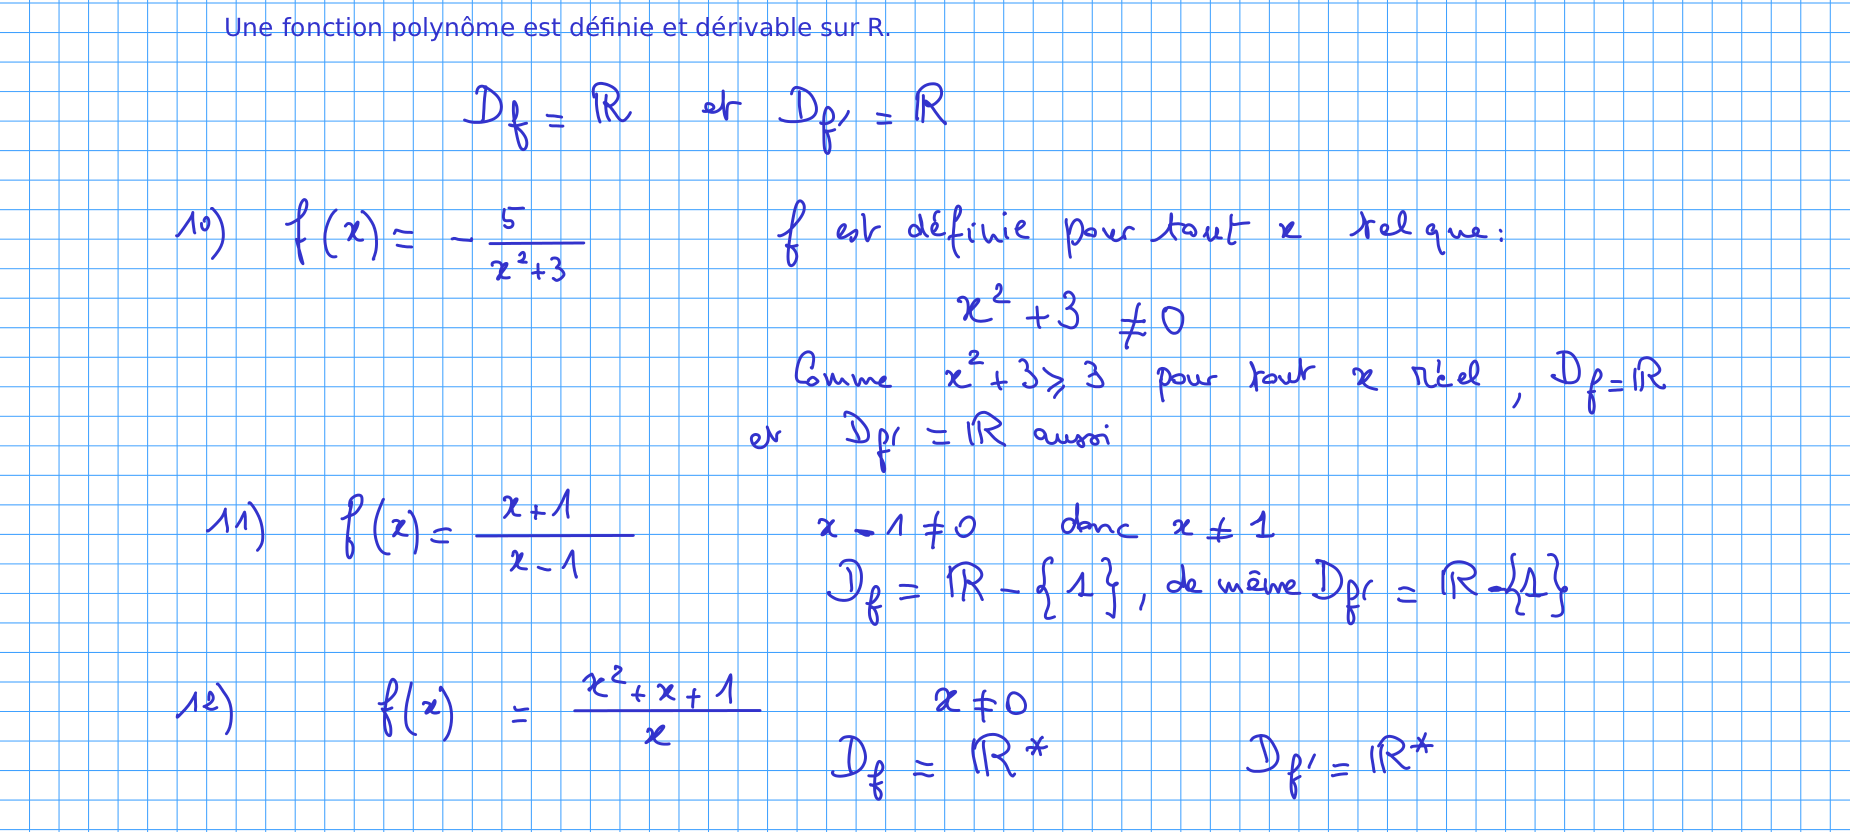 Une fonction polynôme est définie et dérivable sur R.
D_f = ℝ et D_f' = ℝ
10) f(x) = - 5/(x²+3) f est définie pour tout x tel que:
x² + 3 ≠ 0
Comme x² + 3 ⩾ 3 pour tout x réel, D_f = ℝ
et D_f' = ℝ aussi
11) f(x) = (x+1)/(x-1) x - 1 ≠ 0 donc x ≠ 1
D_f = ℝ - {1}, de même D_f' = ℝ - {1}
12) f(x) = (x²+x+1)/x x ≠ 0
D_f = ℝ* D_f' = ℝ*